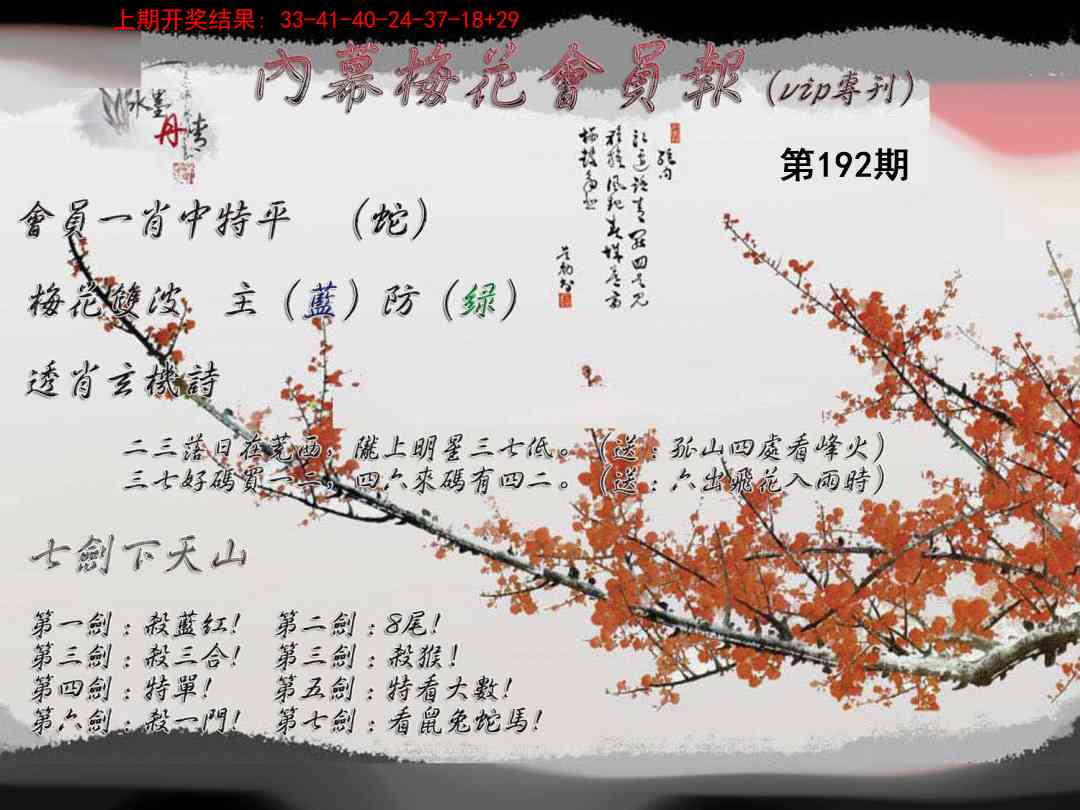 上期开奖结果: 33-41-40-24-37-18+29
內幕梅花會員報(vip專刊)
水墨
丹青
第192期
會員一肖中特平 （蛇）
梅花雙波 主（藍）防（緑）
透肖玄機詩
二三落日在莞西，隴上明星三七低。（送：孤山四處看峰火）
三七好碼買一二，四六來碼有四二。（送：六出飛花入雨時）
七劍下天山
第一劍：殺藍紅! 第二劍：8尾!
第三劍：殺三合! 第三劍：殺猴!
第四劍：特單! 第五劍：特看大數!
第六劍：殺一門! 第七劍：看鼠兔蛇馬!